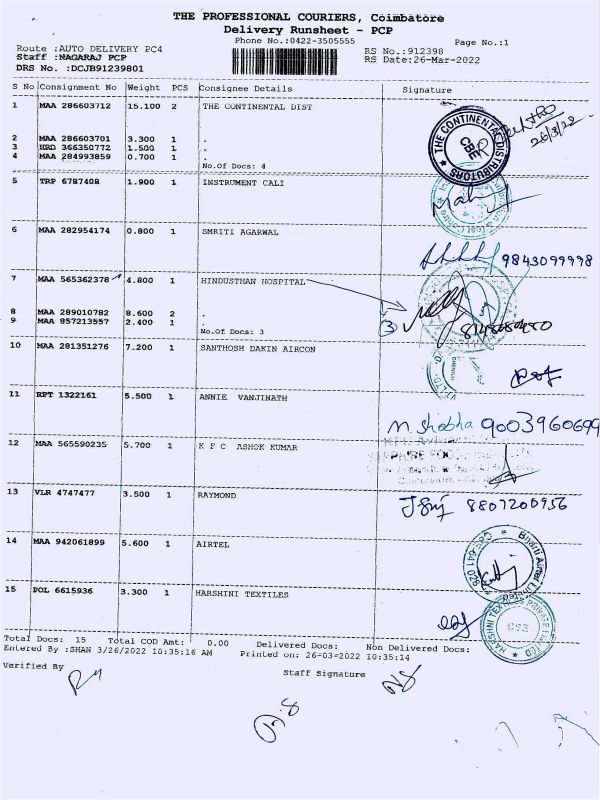 THE PROFESSIONAL COURIERS, Coimbatore
Delivery Runsheet - PCP
Phone No.:0422-3505555
Page No.:1
Route :AUTO DELIVERY PC4
RS No.:912398
Staff :NAGARAJ PCP
RS Date:26-Mar-2022
DRS No. :DCJB91239801
S No Consignment No Weight PCS Consignee Details Signature
1 MAA 286603712 15.100 2 THE CONTINENTAL DIST
THE CONTINENTAL DISTRIBUTORS
CBE
26/3/22
2 MAA 286603701 3.300 1 .
3 HRD 366350772 1.500 1 .
4 MAA 284993859 0.700 1 .
No.Of Docs: 4
5 TRP 6787408 1.900 1 INSTRUMENT CALI
6 MAA 282954174 0.800 1 SMRITI AGARWAL
9843099998
7 MAA 565362378 4.800 1 HINDUSTHAN HOSPITAL
8 MAA 289010782 8.600 2 .
9 MAA 857213557 2.400 1 .
3
No.Of Docs: 3
10 MAA 281351276 7.200 1 SANTHOSH DAKIN AIRCON
11 RPT 1322161 5.500 1 ANNIE VANJINATH
M shobha 9003960699
12 MAA 565590235 5.700 1 K F C ASHOK KUMAR
13 VLR 4747477 3.500 1 RAYMOND
8807200956
14 MAA 942061899 5.600 1 AIRTEL
Bharti Airtel Limited
15 POL 6615936 3.300 1 HARSHINI TEXTILES
HARSHINI TEXTILES PRIVATE LIMITED
Total Docs: 15 Total COD Amt: 0.00 Delivered Docs: Non Delivered Docs:
Entered By :SHAN 3/26/2022 10:35:16 AM Printed on: 26-03-2022 10:35:14
Verified By
Staff Signature